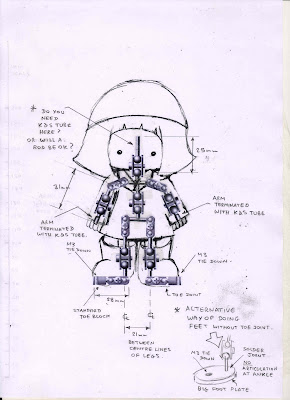 * DO YOU
NEED
K&S TUBE
HERE?
OR WILL A
ROD BE OK?
25mm
31mm
ARM
TERMINATED
WITH K&S TUBE
ARM
TERMINATED
WITH K&S TUBE.
M3
TIE DOWN
M3
TIE DOWN.
52mm
TOE JOINT
STANDARD
TOE BLOCK
21mm
BETWEEN
CENTRE LINES
OF LEGS.
* ALTERNATIVE
WAY OF DOING
FEET WITHOUT TOE JOINT.
M3 TIE
DOWN
SOLDER
JOINT
NO
ARTICULATION
AT ANKLE
BIG FOOT PLATE